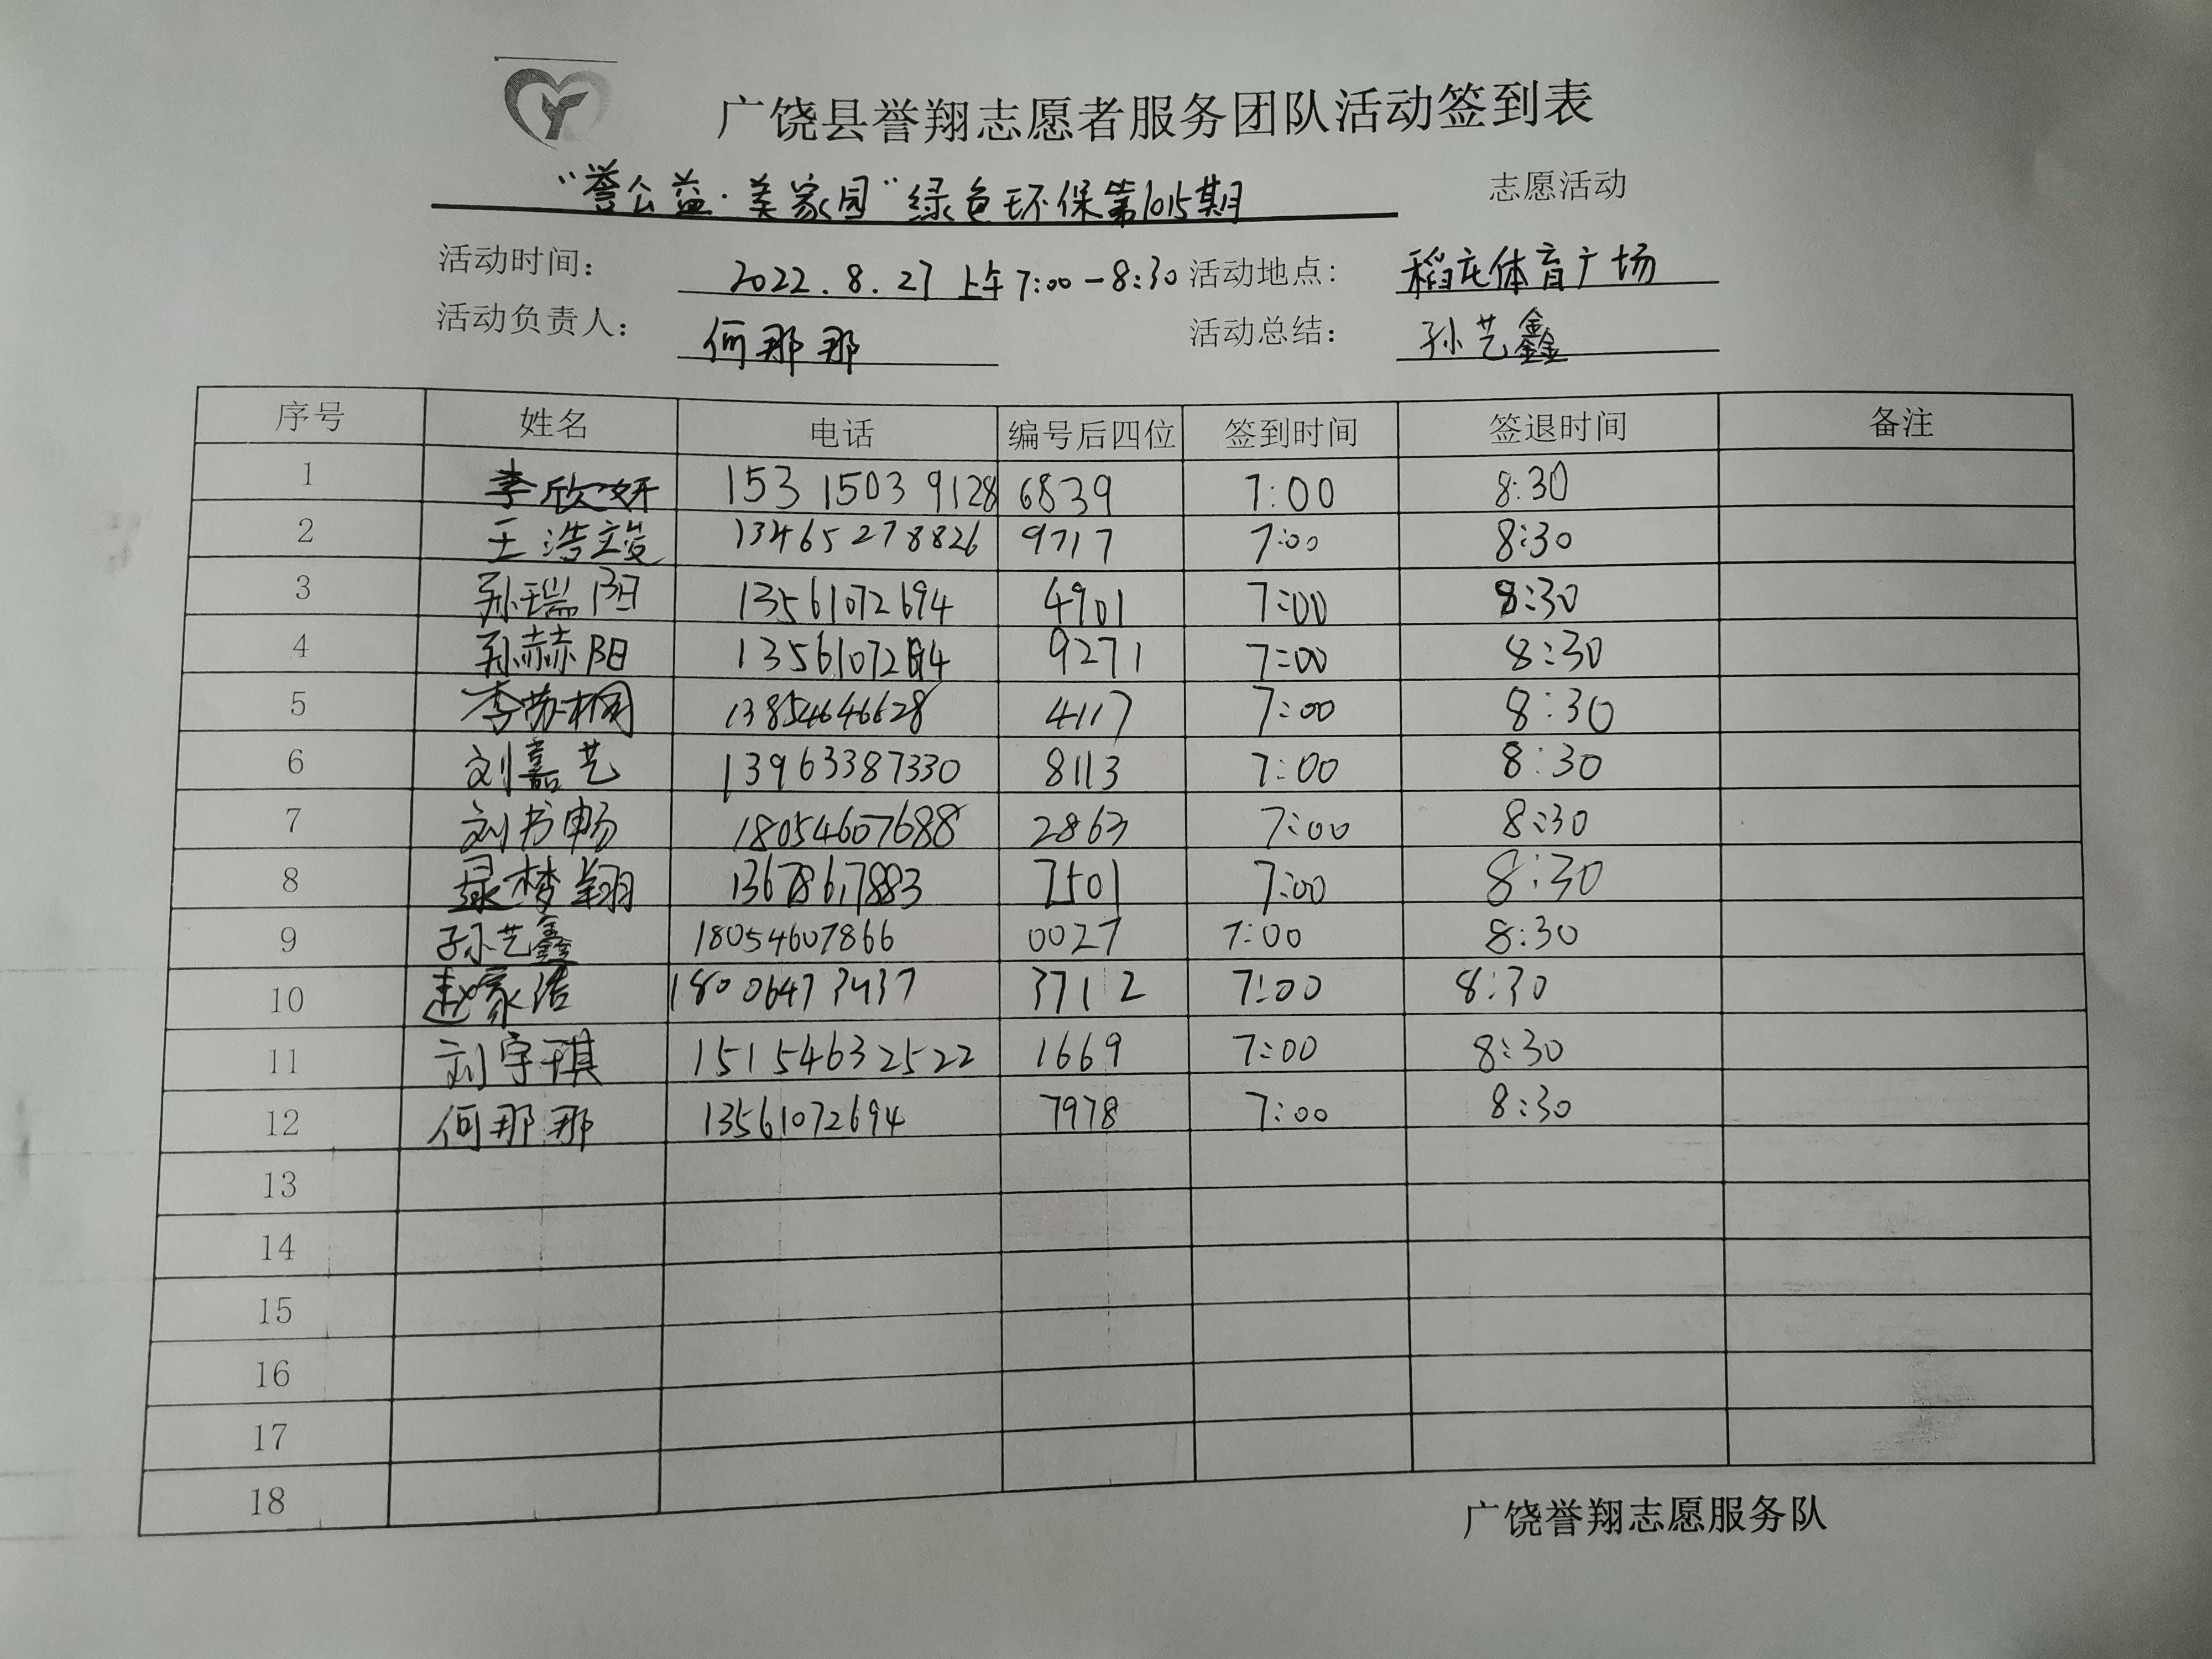 广饶县誉翔志愿者服务团队活动签到表
“誉公益·美家园”绿色环保第1015期 志愿活动
活动时间： 2022.8.27 上午7:00-8:30 活动地点： 稻庄体育广场
活动负责人： 何那那 活动总结： 孙艺鑫
序号 姓名 电话 编号后四位 签到时间 签退时间 备注
1 李欣妍 153 1503 9128 6839 7:00 8:30
2 王浩竣 13465278826 9717 7:00 8:30
3 孙瑞阳 13561072694 4901 7:00 8:30
4 孙赫阳 9271 7:00 8:30
5 李苏桐 13854646628 4117 7:00 8:30
6 刘嘉艺 13963387330 8113 7:00 8:30
7 刘书畅 18054607688 2863 7:00 8:30
8 梦翔 13678617883 7501 7:00 8:30
9 孙艺鑫 18054607866 0027 7:00 8:30
10 赵家浩 18006473437 3712 7:00 8:30
11 刘宇琪 15154632522 1669 7:00 8:30
12 何那那 13561072694 7978 7:00 8:30
13
14
15
16
17
18
广饶誉翔志愿服务队